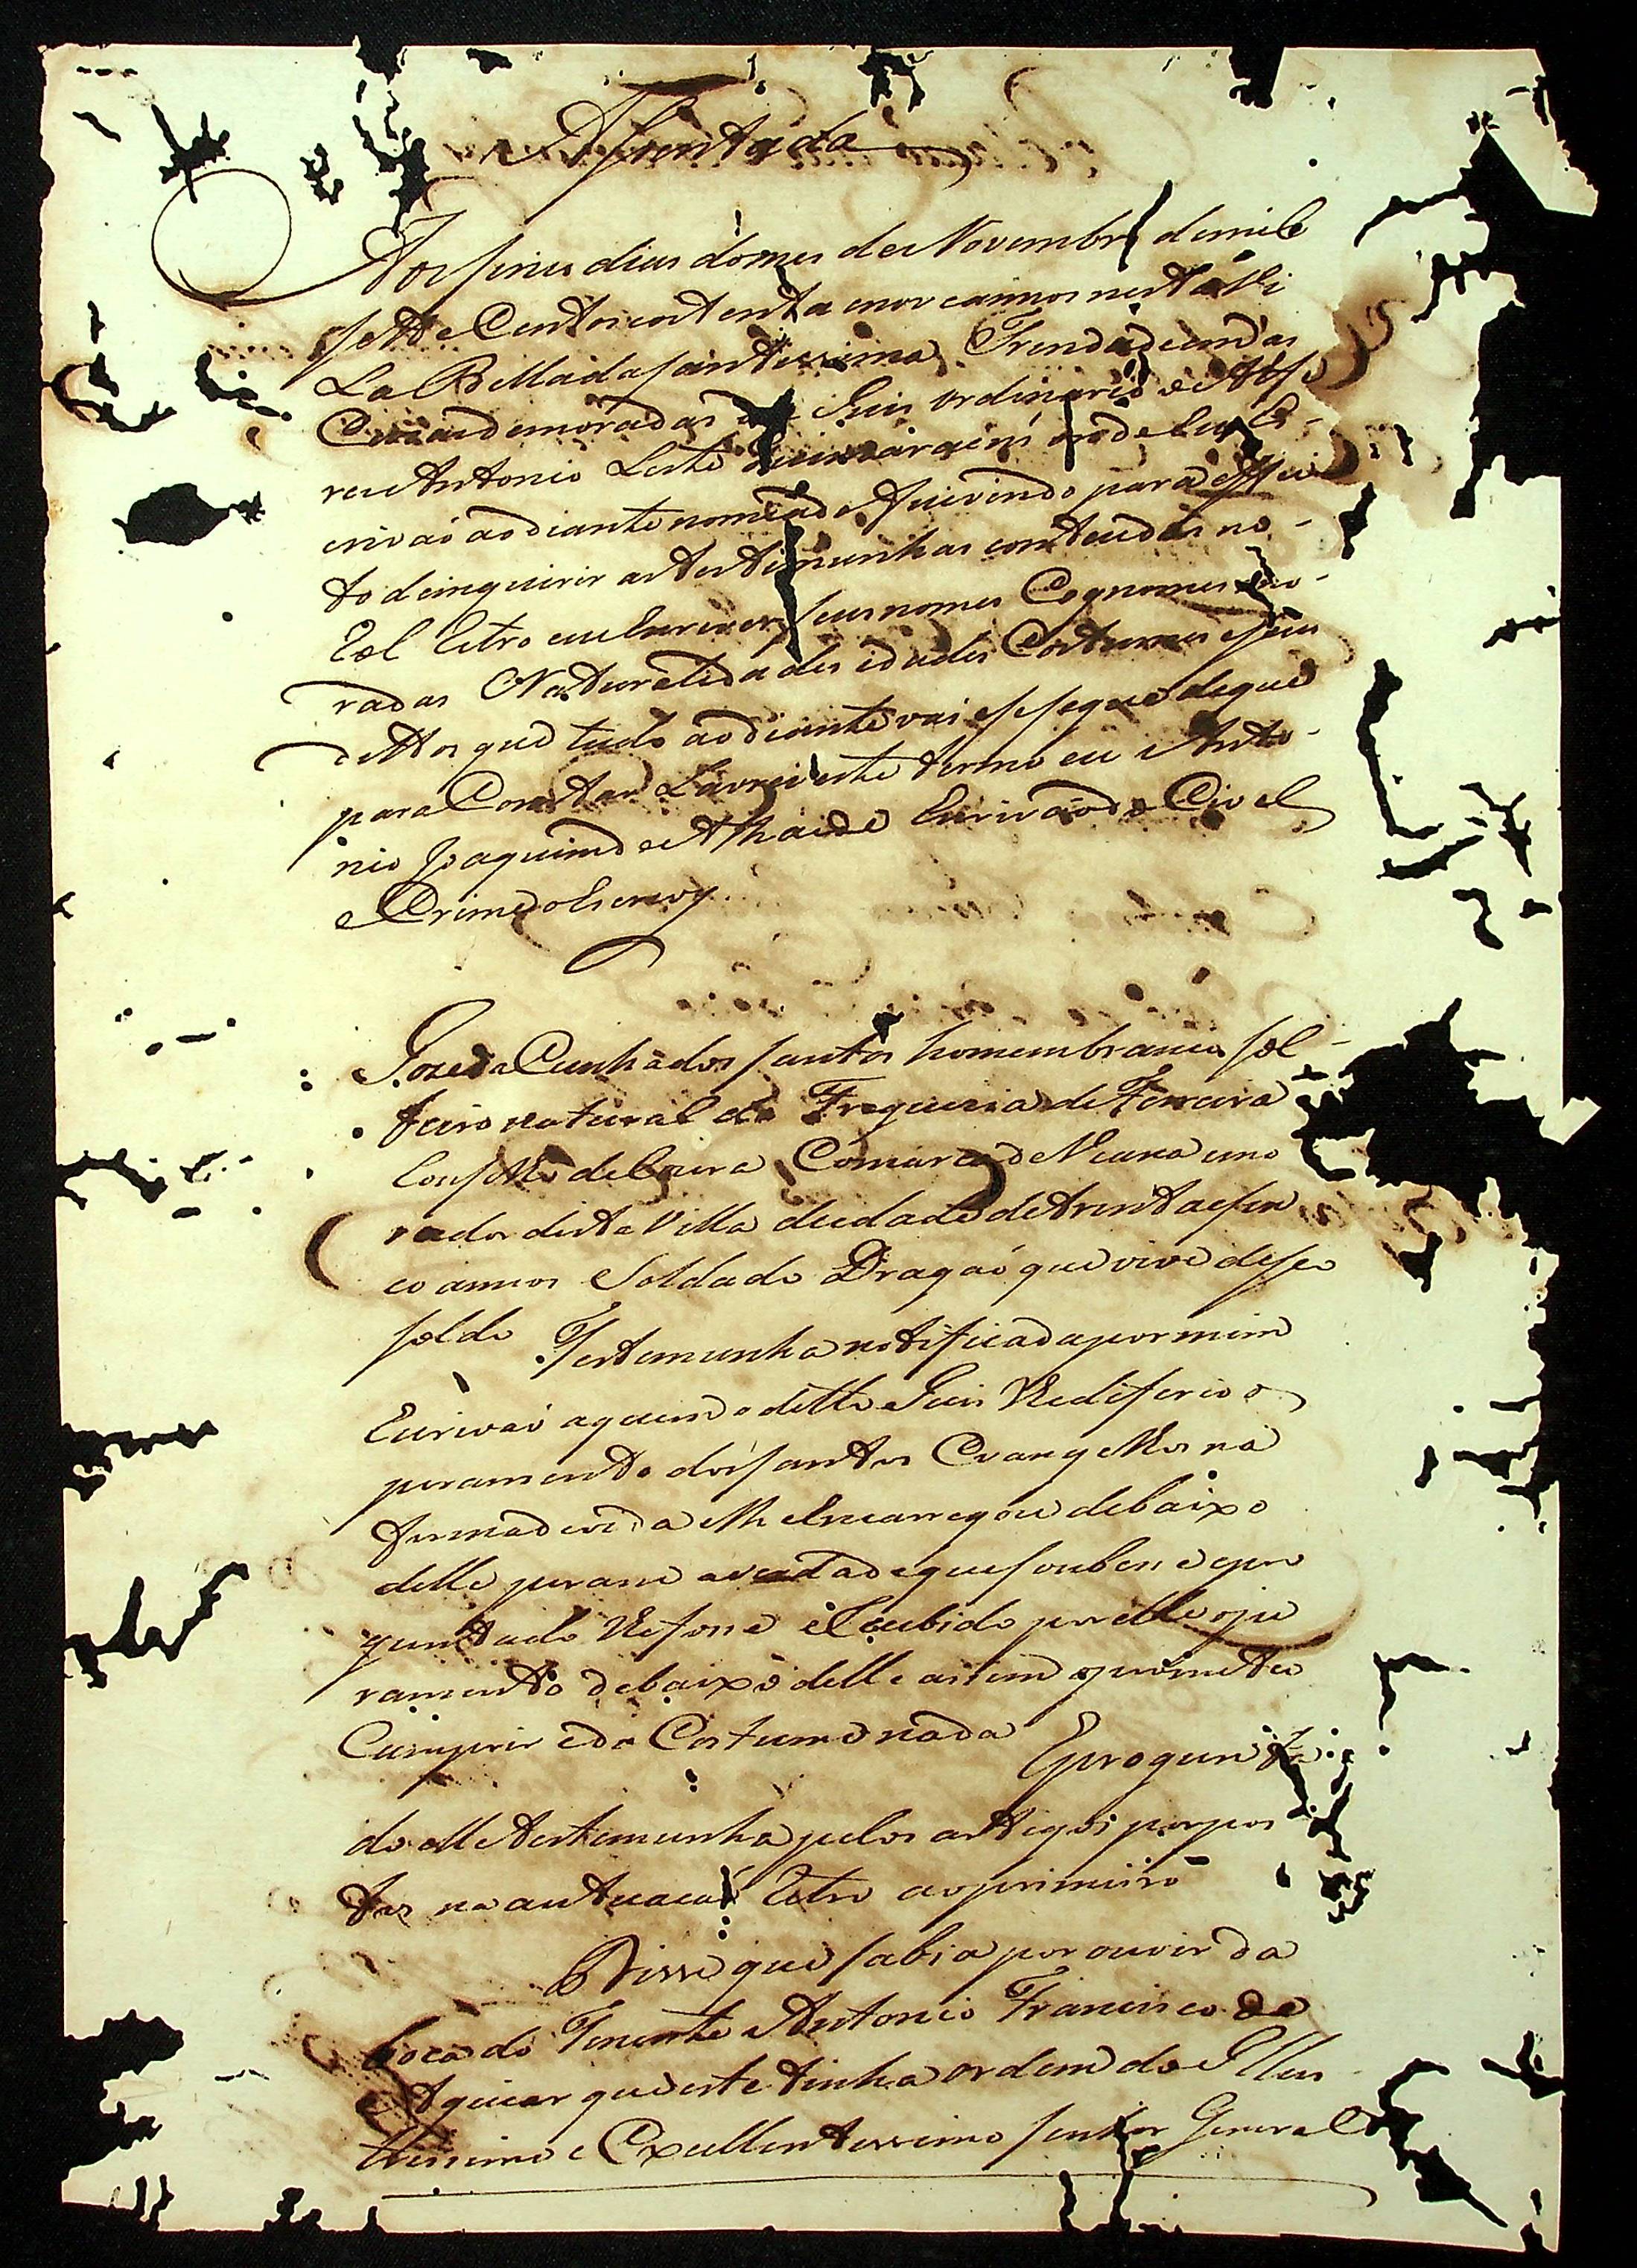 Assentada
Aos sinco dias do mes de Novembro de mil e
sette Centos eoitenta enove annos nesta Vi
La Bella da santissima Trindade em as
Cazas demoradas do Juis ordinario o Alfe
res Antonio Leite onde eu Es-
crivaó ao diante nomeado fui vindo para effei
to deinquirir as testemunhas conteudas no
Rol Retro eu Escrever seus nomes Cognomes mo-
radas Naturalidades idades Costumes eseus
dittos que tudo ao diante vai esesegue de que
para Constar Lavrei este termo eu Anto-
nio Joaquim de Athaide Escrivaó do Civel
e Crime o Escrevy
Joze da Cunha dos santos homem branco sol-
teiro natural da Freguezia de Ferreira
Conselho de Coura Comarca de Viana emo
rador desta Villa deidade de trinta esin
co annos Soldado Dragaó que vive deseo
soldo Testemunha notificada por mim
Escrivaó aquem o ditto Juis Redeferio o
juramento dos santos Evangelhos na
forma devida elhe Encarregou debaixo
delle jurace averdade que soubese epre
guntado lhefose eRecebido por elle oju
ramento debaixo delle asim oprometeo
Cumprir edo Costume nada Epregunta
do elle testemunha pelos artigos propos
tos na autuacaó Retro ao primeiro
Disse que sabia por ouvir da
boca do Tenente Antonio Francisco de
Aguiar que este tinha ordem do Illus
trissimo e Excellentissimo senhor General